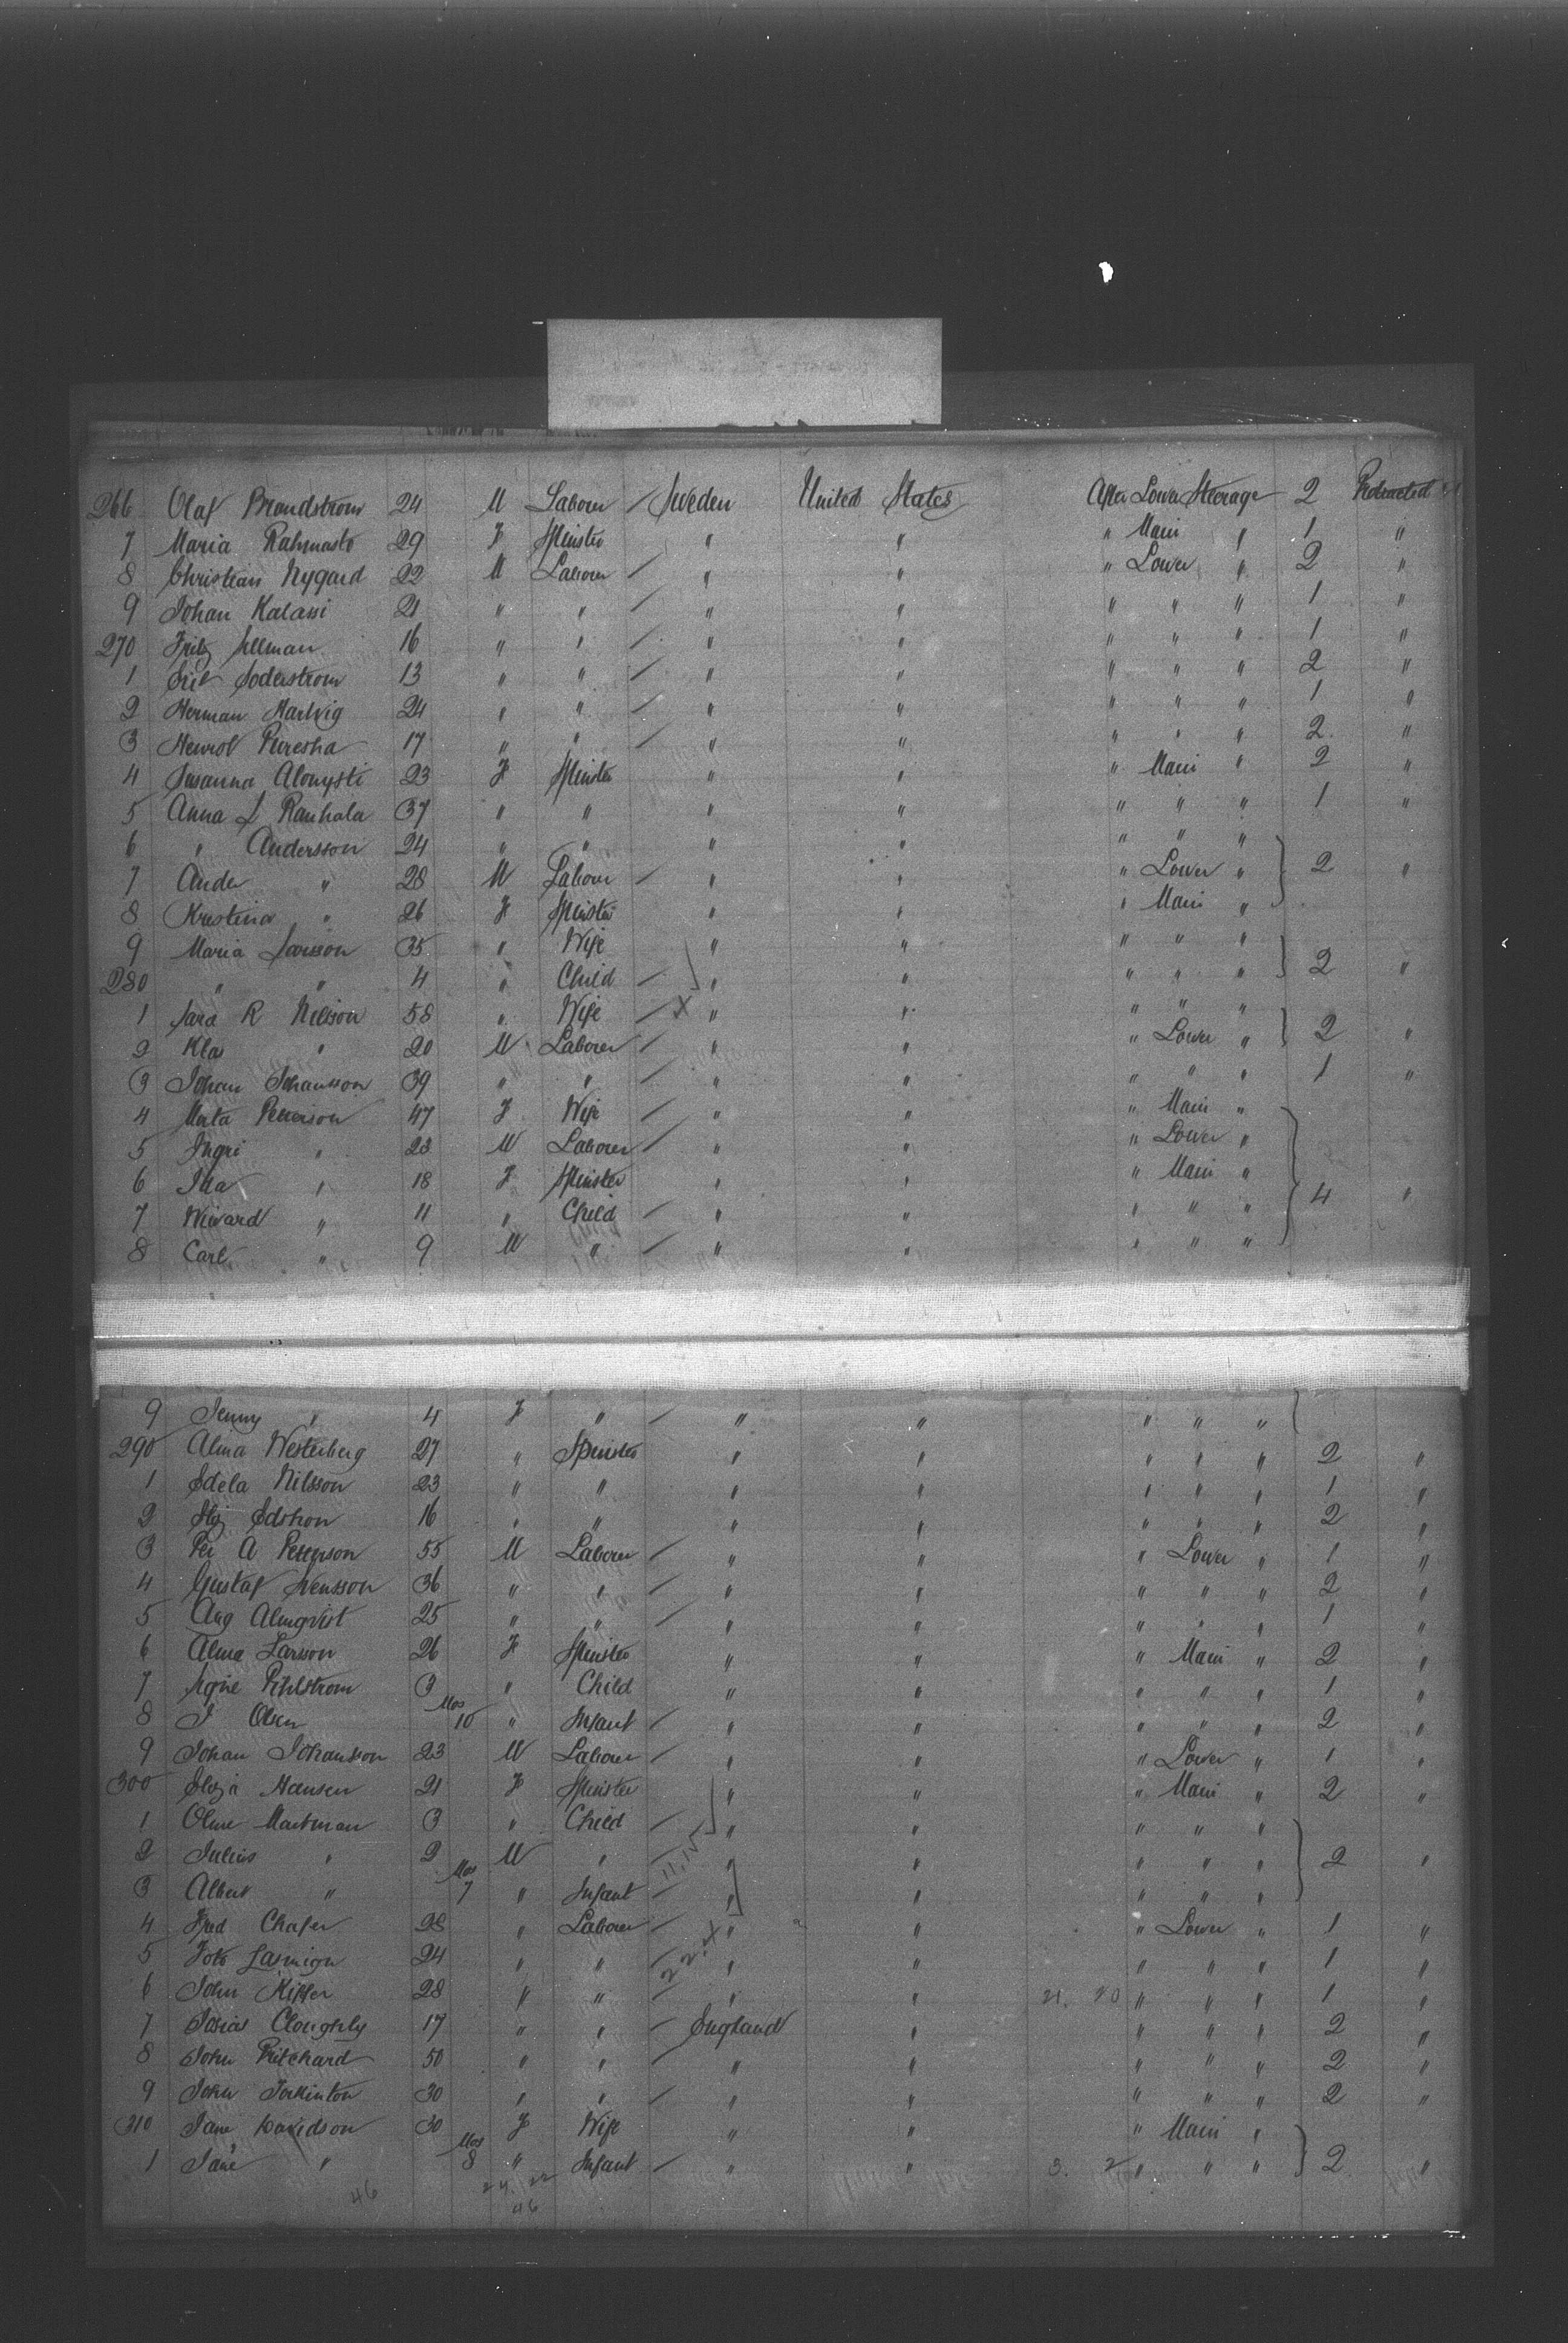 266 Olaf Brandstrom 24 M Laborer / Sweden United States After Lower Steerage 2 Protracted
7 Maria 29 F Spinster " " " Main " 1 "
8 Christian Nygard 22 M Laborer / " " " Lower " 2 "
9 Johan Kalassi 21 " " / " " " " " 1 "
270 Fritz 16 " " / " " " " " 1 "
1 Soderstrom 13 " " / " " " " " 2 "
2 Herman Hartvig 24 " " / " " " " " 1 "
3 17 " " / " " " " " 2 "
4 Susanna 23 F Spinster " " " Main " 2 "
5 Anna L Rauhala 37 " " " " " " " 1 "
6 " Andersson 24 " " " " " " "
7 Ander " 28 M Laborer / " " " Lower " 2 "
8 Kristina " 26 F Spinster " " " Main "
9 Maria Larsson 35 " Wife " " " " "
280 " " 4 " Child / " " " " " 2 "
1 Sara R Nilsson 58 " Wife / X " " " " "
2 Klas " 20 M Laborer / " " " Lower " 2 "
3 Johan Johansson 39 " " / " " " " " 1 "
4 Petterson 47 F Wife / " " " Main "
5 Ingri " 23 M Laborer / " " " Lower "
6 Ida " 18 F Spinster " " " Main "
7 " 11 " Child / " " " " " 4 "
8 Carl " 9 M " / " " " " "
9 Jenny " 4 F " / " " " " "
290 Alma Westerberg 27 " Spinster " " " " " 2 "
1 Edela Nilsson 23 " " " " " " " 1 "
2 16 " " " " " " " 2 "
3 Per A Petterson 55 M Laborer / " " " Lower " 1 "
4 Gustaf Svensson 36 " " / " " " " " 2 "
5 Aug Almqvist 25 " " / " " " " " 1 "
6 Alma Larsson 26 F Spinster " " " Main " 2 "
7 3 " Child " " " " " 1 "
8 J Olsen Mos 10 " Infant / " " " " " 2 "
9 Johan Johansson 23 M Laborer / " " " Lower " 1 "
300 Hansen 21 F Spinster " " " Main " 2 "
1 Oline 3 " Child / " " " " "
2 Julius " 2 M " / " " " " " 2 "
3 Albert " Mos 7 " Infant / " " " " "
4 Fred Chafer 28 " Laborer / " " " Lower " 1 "
5 24 " " / " " " " " 1 "
6 John 28 " " / " " 21. 20 " " " 1 "
7 Cloughly 17 " " / England " " " " 2 "
8 John Pritchard 50 " " / " " " " " 2 "
9 John 30 " " / " " " " " 2 "
310 Jane Davidson 30 F Wife " " " Main "
1 Jane " Mos 8 " Infant / " " 3. 2 " " " 2 "
46 24. 22
46